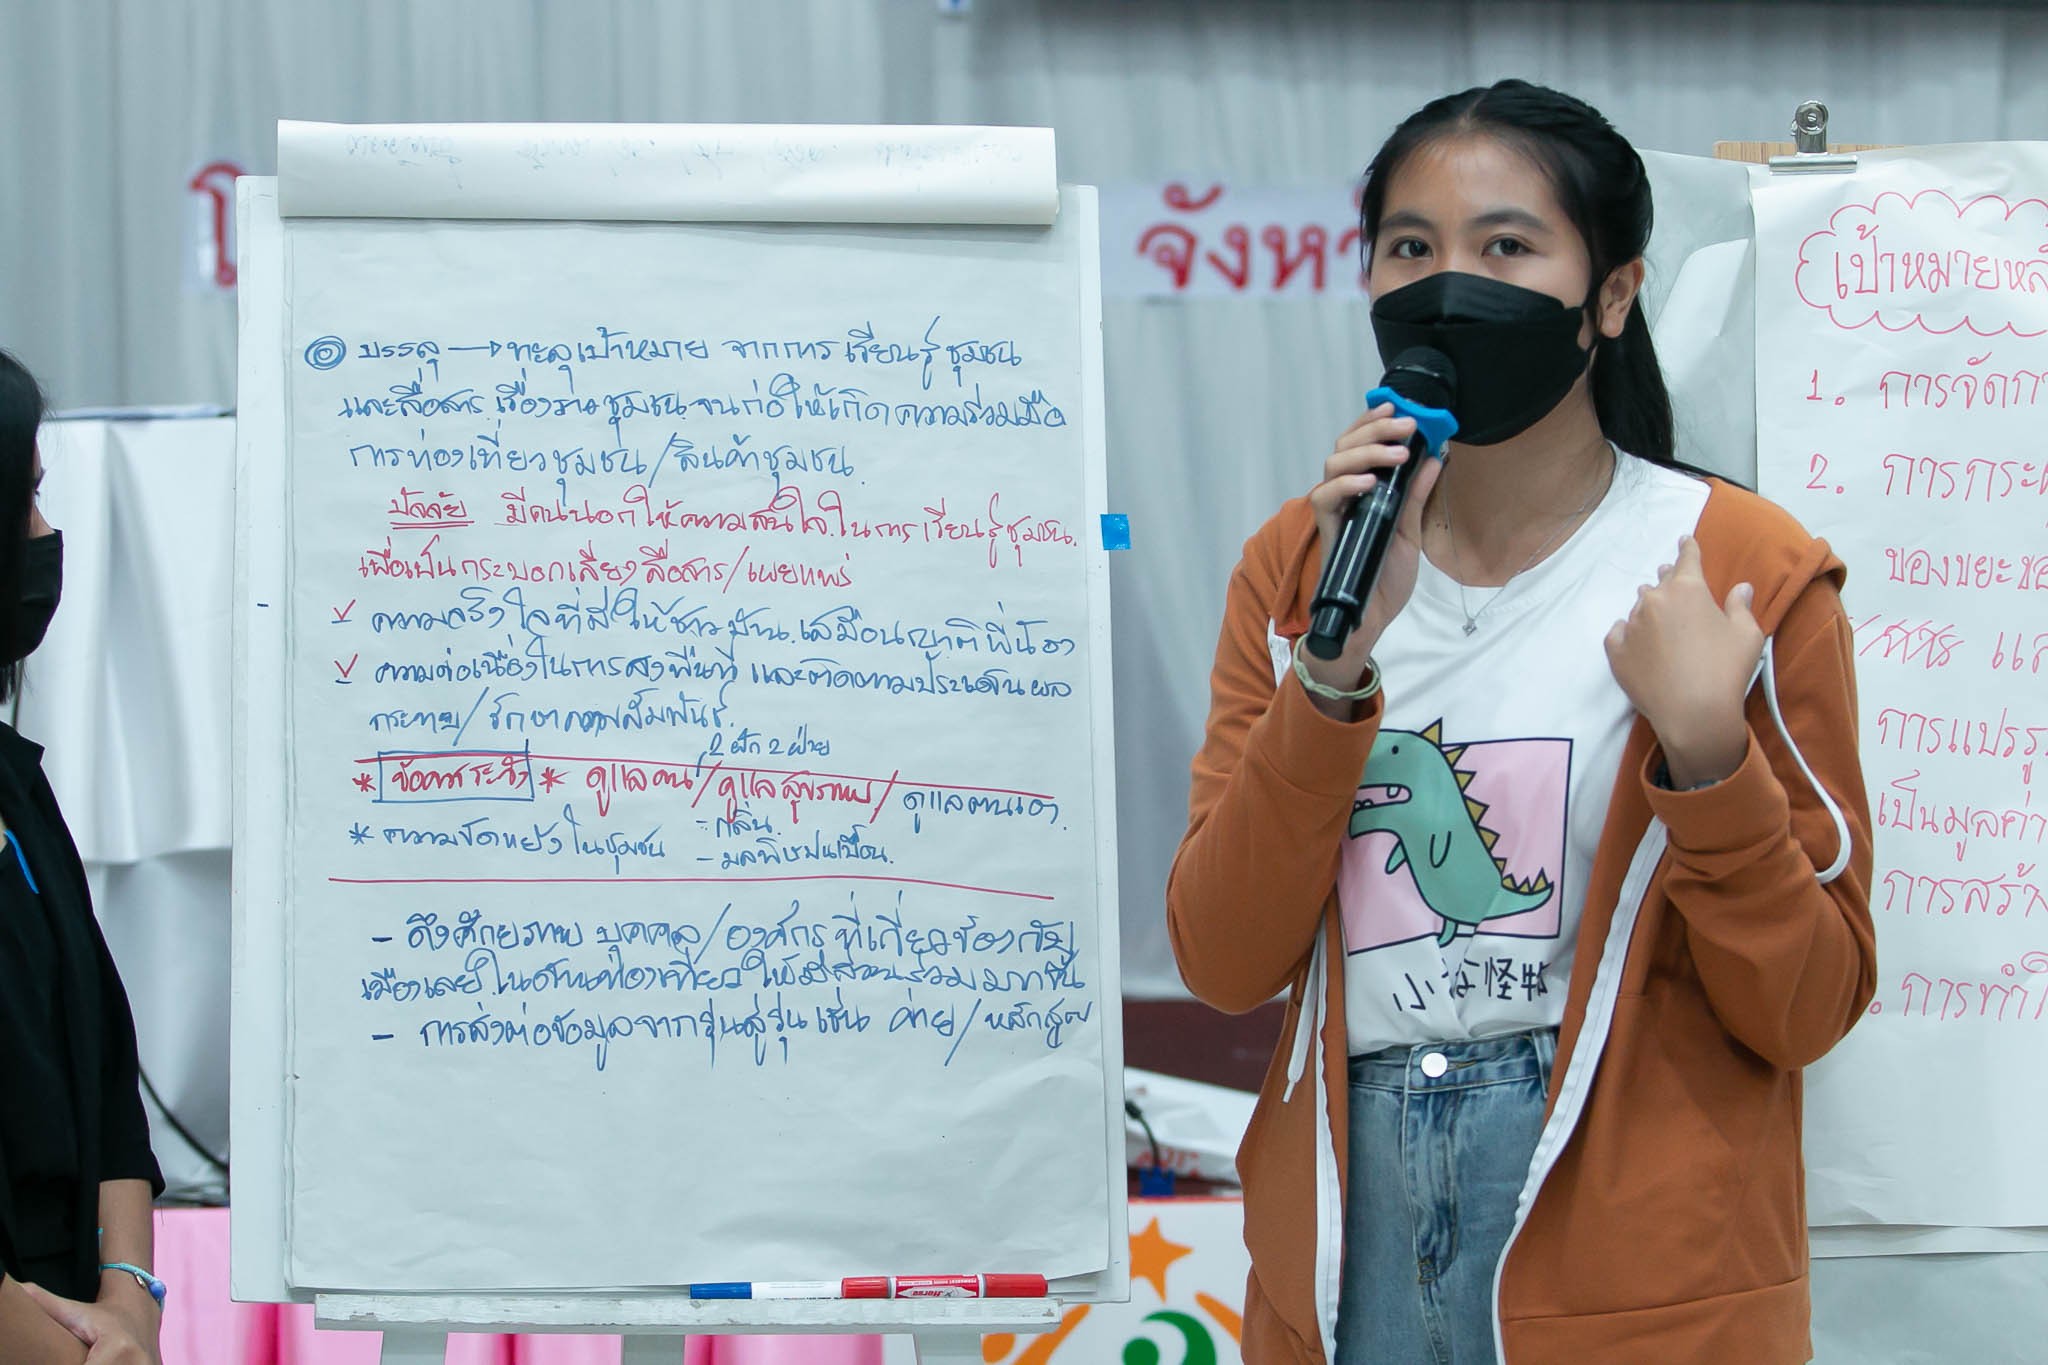 จังหวั
บรรลุ → ทะลุเป้าหมาย จากการเรียนรู้ชุมชน
และสื่อสารเรื่องราวชุมชน จนก่อให้เกิดความร่วมมือ
การท่องเที่ยวชุมชน/สินค้าชุมชน
ปัจจัย มีคนนอกให้ความสนใจในการเรียนรู้ชุมชน
เพื่อเป็นกระบอกเสียงสื่อสาร/เผยแพร่
✓ ความจริงใจที่มีให้ชาวบ้าน เสมือนญาติพี่น้อง
✓ ความต่อเนื่องในการลงพื้นที่ และติดตามประเด็นผล
กระทบ/รักษาความสัมพันธ์
* ข้อควรระวัง * ดูแลคน/ดูแลสุขภาพ/ดูแลตนเอง
2 ฝัก 2 ฝ่าย
* ความขัดแย้งในชุมชน
- กลิ่น
- มลพิษปนเปื้อน
- ดึงศักยภาพ บุคคล/องค์กรที่เกี่ยวข้องกับ
เมืองเลย ในด้านท่องเที่ยว ให้มีส่วนร่วมมากขึ้น
- การส่งต่อข้อมูลจากรุ่นสู่รุ่น เช่น ค่าย/หลักสูตร
PERMANENT
Horse
小怪物
เป้าหมายหลั
1. การจัดกา
2. การกระ
ของขยะขอ
การแปรรู
เป็นมูลค่า
การสร้า
การทำ